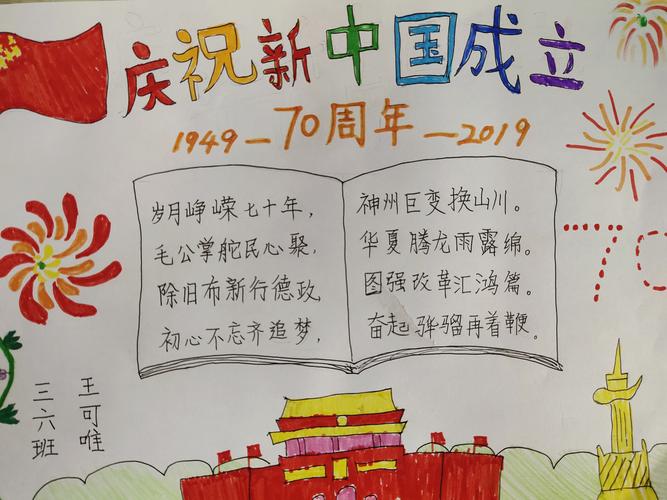 庆祝新中国成立
1949—70周年—2019
岁月峥嵘七十年，
毛公掌舵民心聚，
除旧布新行德政
初心不忘齐追梦，
神州巨变换山川。
华夏腾龙雨露绵。
图强改革汇鸿篇。
奋起骅骝再着鞭。
70
王可唯
三六班